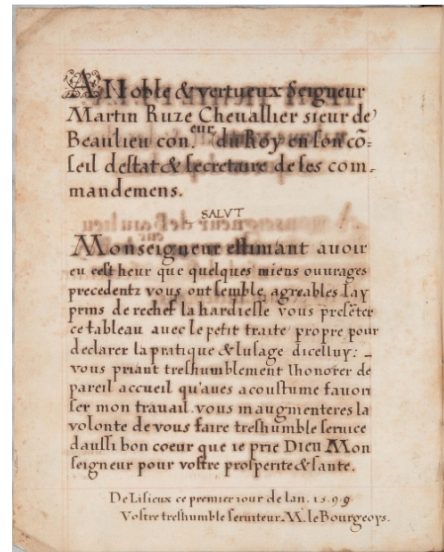 A Noble & vertueux Seigneur
Martin Ruze Cheuallier sieur de
Beaulieu con.eur du Roy en son cõ=
seil destat & secretaire de ses com=
mandemens.
SALVT
Monseigneur estimant auoir
eu cest heur que quelques miens ouurages
precedentz vous ont semble agreables Iay
prins de rechef la hardiesse vous presẽter
ce tableau auec le petit traite propre pour
declarer la pratique & lusage dicelluy: _
vous priant treshumblement lhonorer de
pareil accueil qu'aues acoustume fauori
ser mon trauail. vous maugmenteres la
volonte de vous faire treshumble seruice
daussi bon coeur que ie prie DIEU Mon
seigneur pour vostre prosperite & sante.
De Lisieux ce premier iour de lan. 1599
Vostre treshumble seruiteur M. le Bourgeoys.